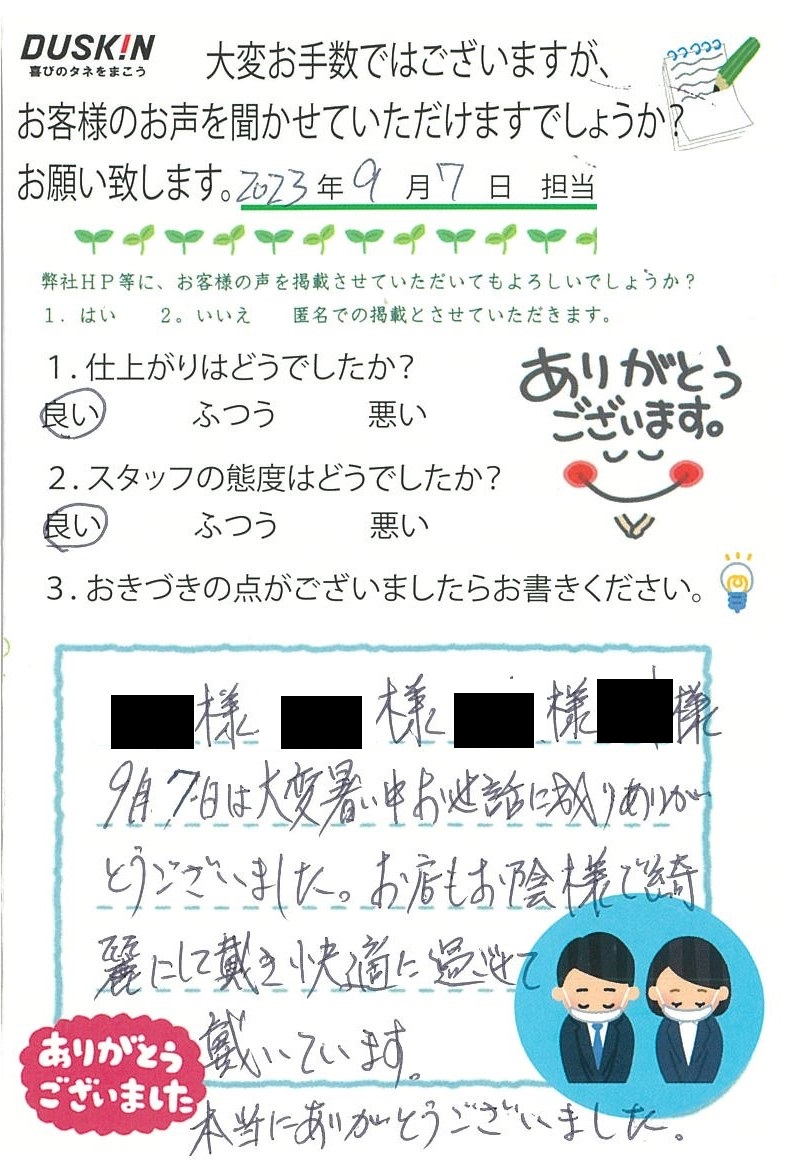 DUSK!N
喜びのタネをまこう
大変お手数ではございますが、
お客様のお声を聞かせていただけますでしょうか?
お願い致します。2023年9月7日 担当
弊社HP等に、お客様の声を掲載させていただいてもよろしいでしょうか?
1. はい 2。いいえ 匿名での掲載とさせていただきます。
1. 仕上がりはどうでしたか?
良い ふつう 悪い
ありがとう
ございます。
2. スタッフの態度はどうでしたか?
良い ふつう 悪い
3. おきづきの点がございましたらお書きください。
様 様 様 様
9月7日は大変暑い中お世話に成りありが
とうございました。お店もお陰様で綺
麗にして戴き快適に過ごせて
戴いています。
本当にありがとうございました。
ありがとう
ございました